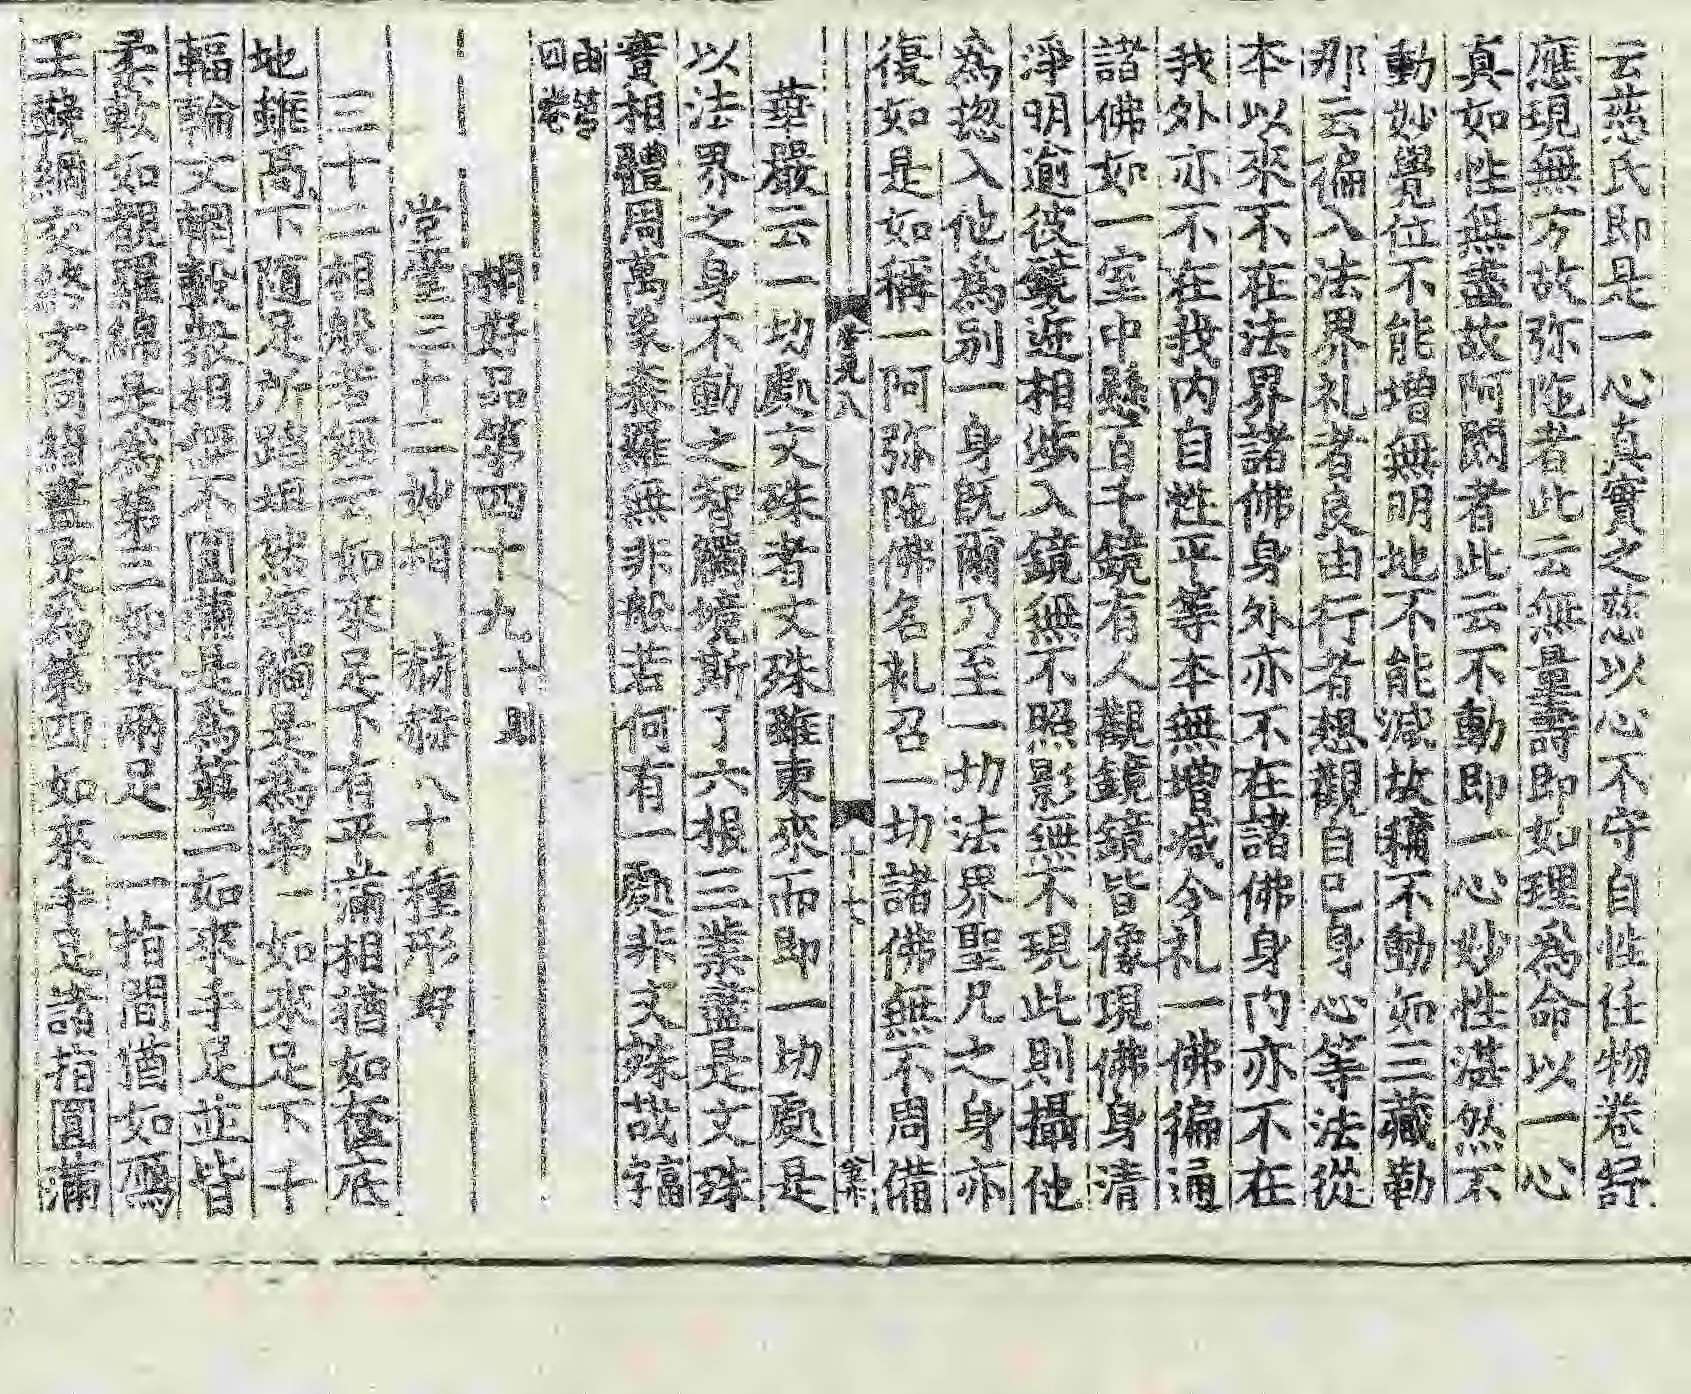 云慈氏即是一心真實之慈以心不守自性任物卷舒
應現無方故弥陁者此云無量壽即如理爲命以一心
真如性無盡故阿閦者此云不動即一心妙性湛然不
動妙覺位不能增無明地不能減故稱不動如三藏勒
那云徧入法界礼者良由行者想觀自己身心等法從
本以來不在法界諸佛身外亦不在諸佛身内亦不在
我外亦不在我内自性平等本無增减今礼一佛徧通
諸佛如一室中懸百千鏡有人觀鏡鏡皆像現佛身清
淨明逾彼鏡遞相涉入鏡無不照影無不現此則攝他
為揔入他為别一身既爾乃至一切法界聖凡之身亦
復如是如稱一阿弥陁佛名礼召一切諸佛無不周備
十七
華嚴云一切處文殊者文殊雖東來而即一切處是
以法界之身不動之智觸境斯了六根三業盡是文殊
實相體周萬象森羅無非般若何有一處非文殊哉
相好品第四十九 十則
堂堂三十二妙相 赫赫八十種形好
三十二相般若經云如來足下有平滿相猶如奩底
地雖高下随足所蹈坦然等觸是為第一如來足下千
輻輪文輞轂衆相無不圓滿是爲第二如來手足並皆
柔軟如覩羅綿是爲第三如來兩足一一指間猶如鴈
王鞔網文同綺畫是為第四如來手足諸指圓滿